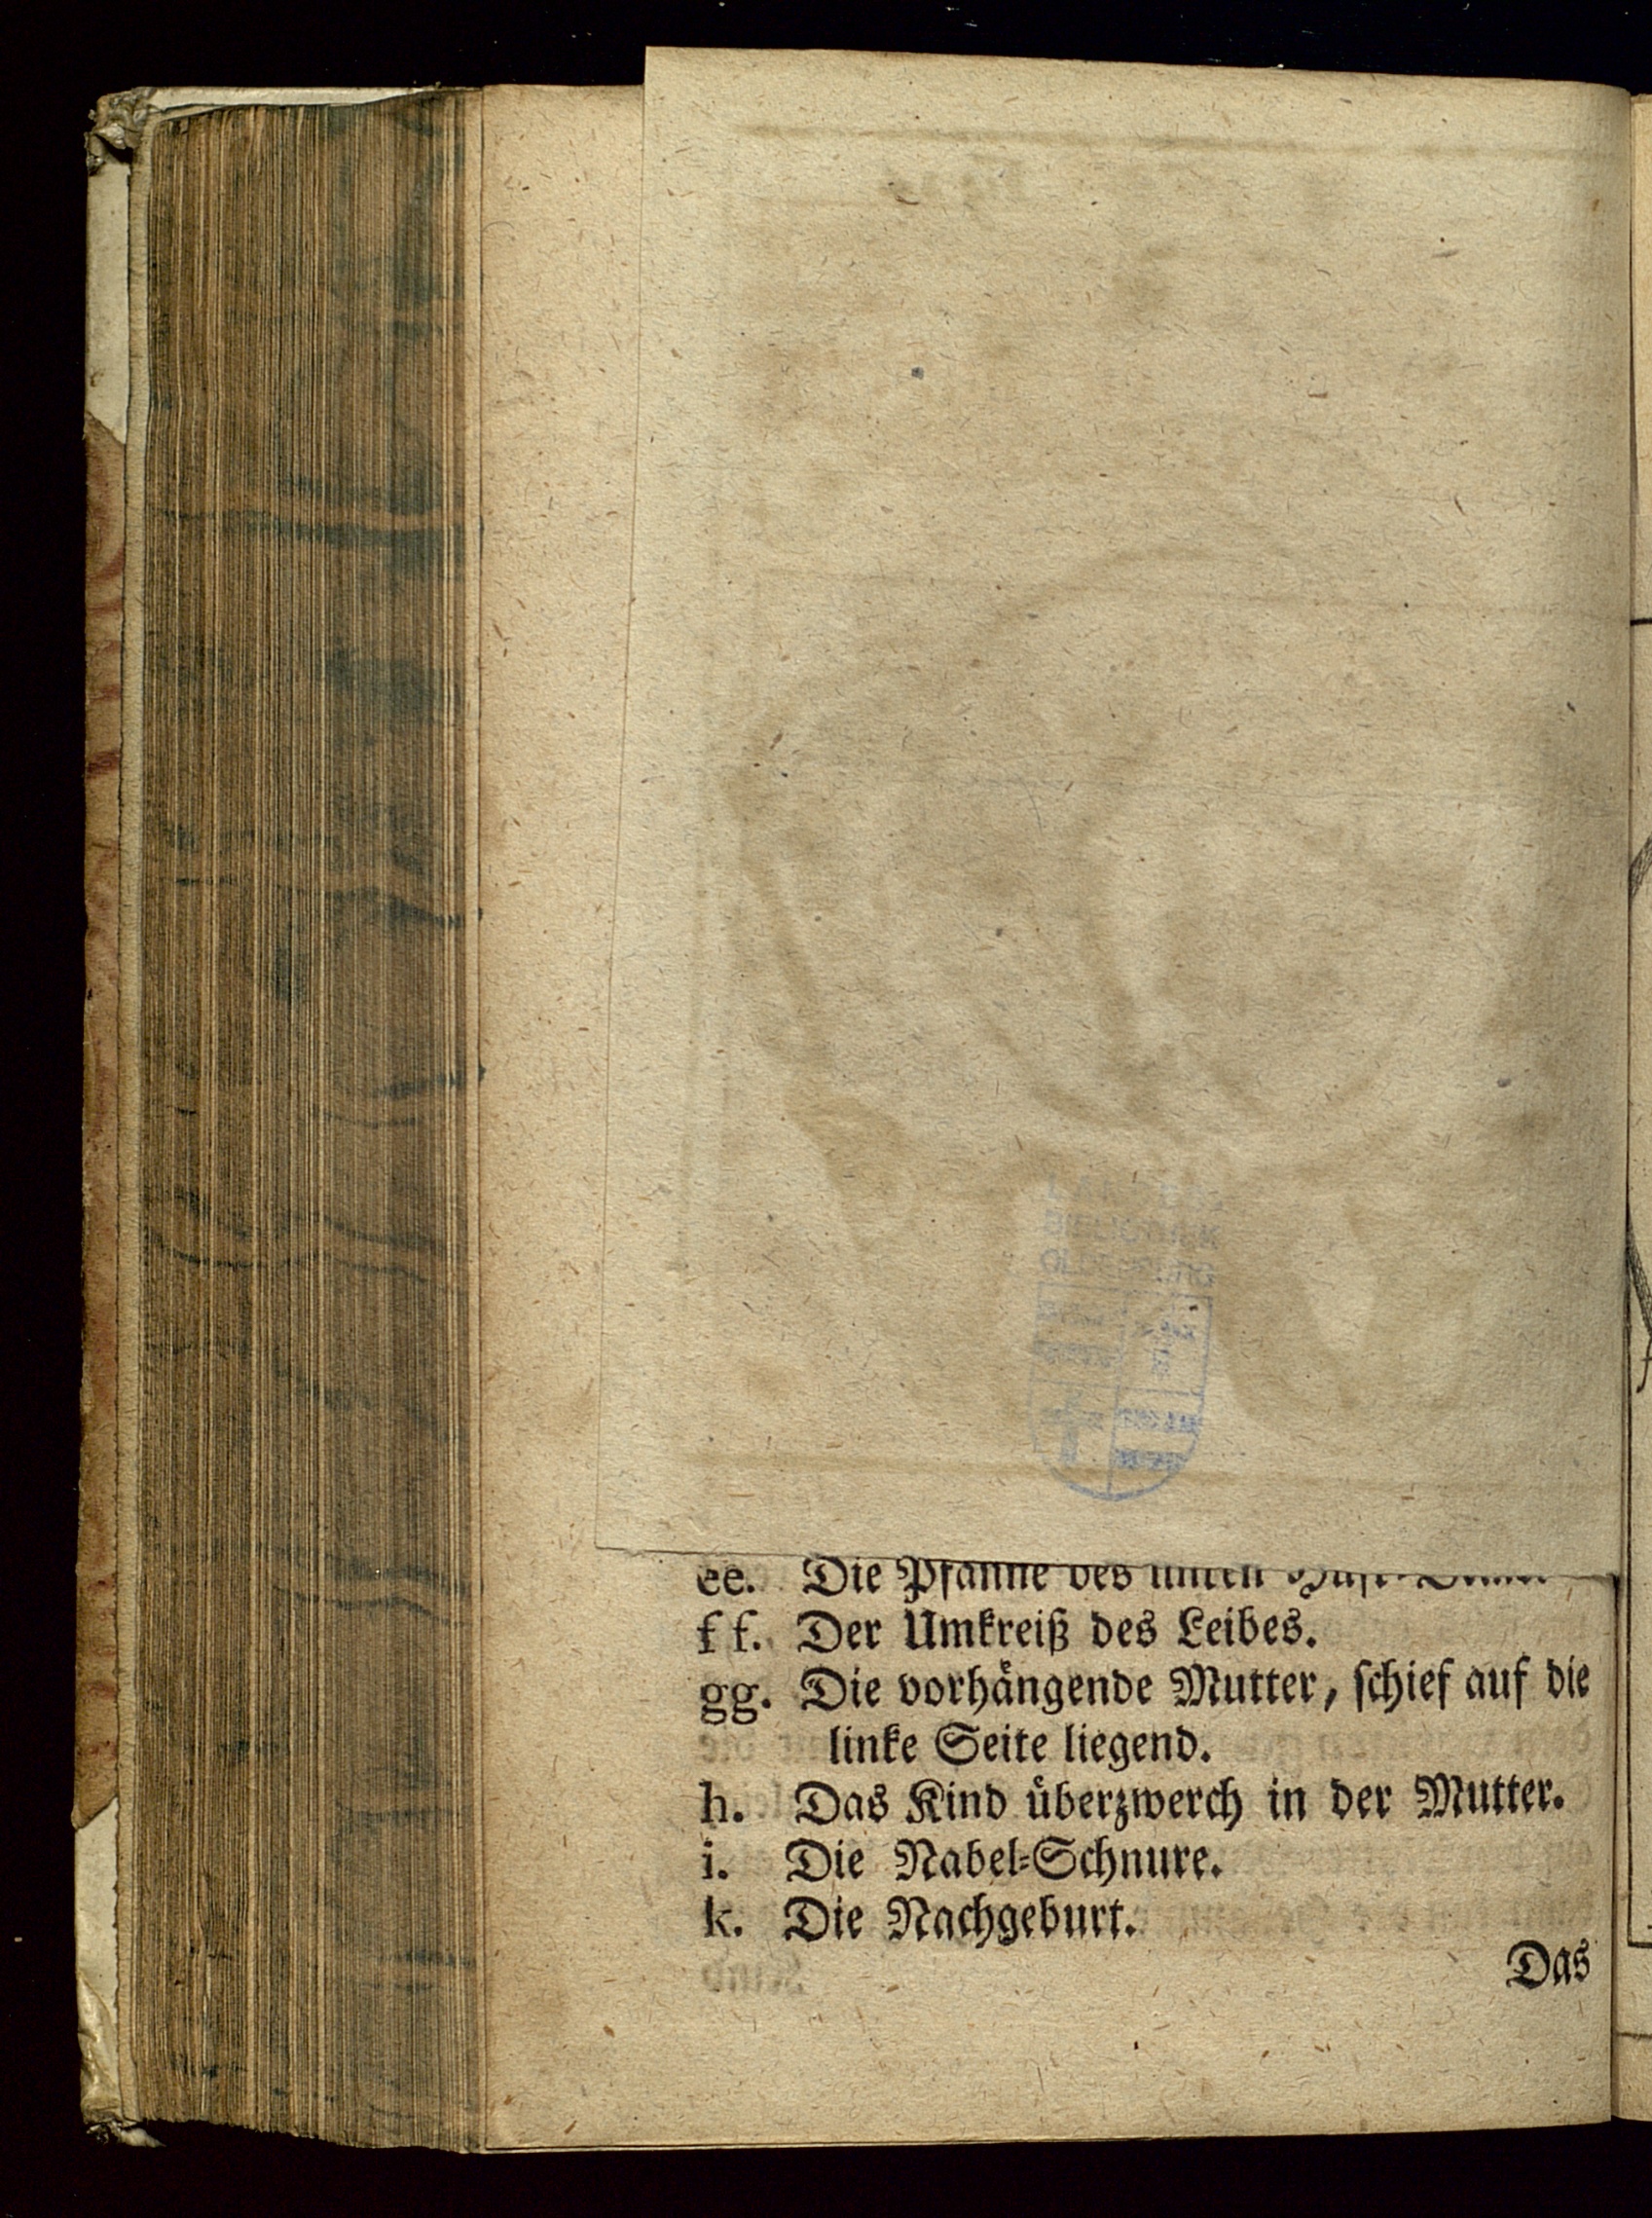 ee. Die Pfanne des
ff. Der Umkreiß des Leibes.
gg. Die vorhängende Mutter, schief auf die
linke Seite liegend.
h. Das Kind überzwerch in der Mutter.
i. Die Nabel=Schnure.
k. Die Nachgeburt.
Das